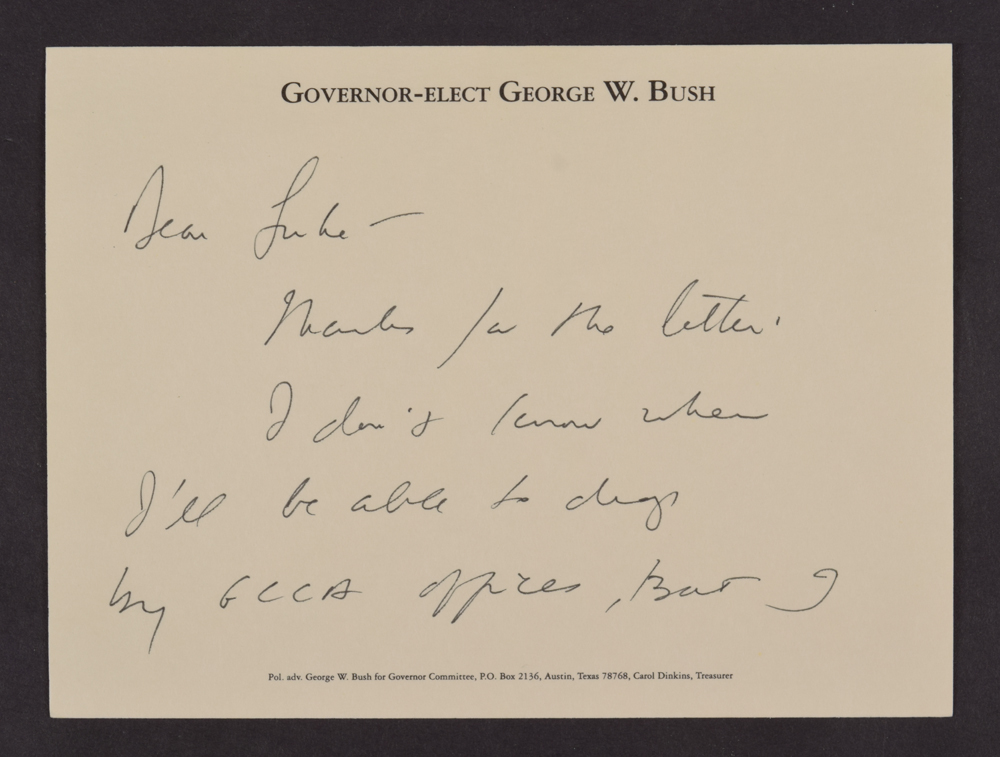 GOVERNOR-ELECT GEORGE W. BUSH
Dear Luke –
Thanks for the letter.
I don't know when
I'll be able to drop
by GCCA offices, But I
Pol. adv. George W. Bush for Governor Committee, P.O. Box 2136, Austin, Texas 78768, Carol Dinkins, Treasurer